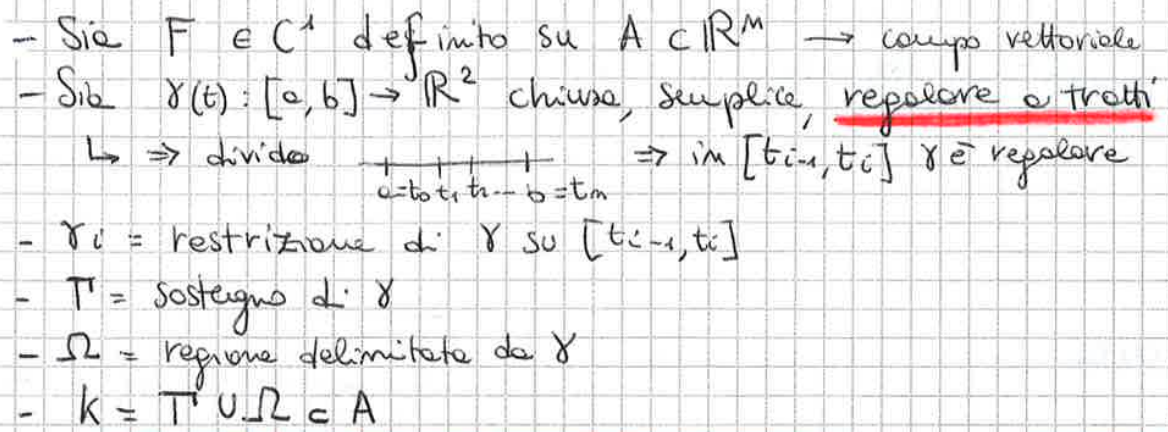 - Sia F ∈ C¹ definito su A ⊂ ℝᴹ → campo vettoriale
- Sia γ(t): [a, b] → ℝ² chiusa, semplice, regolare a tratti
↳ ⇒ divido ⇒ in [tᵢ₋₁, tᵢ] γ è regolare
a=t₀ t₁ t₂ -- b=tₘ
- γᵢ = restrizione di γ su [tᵢ₋₁, tᵢ]
- Γ = sostegno di γ
- Ω = regione delimitata da γ
- K = Γ ∪ Ω ⊂ A